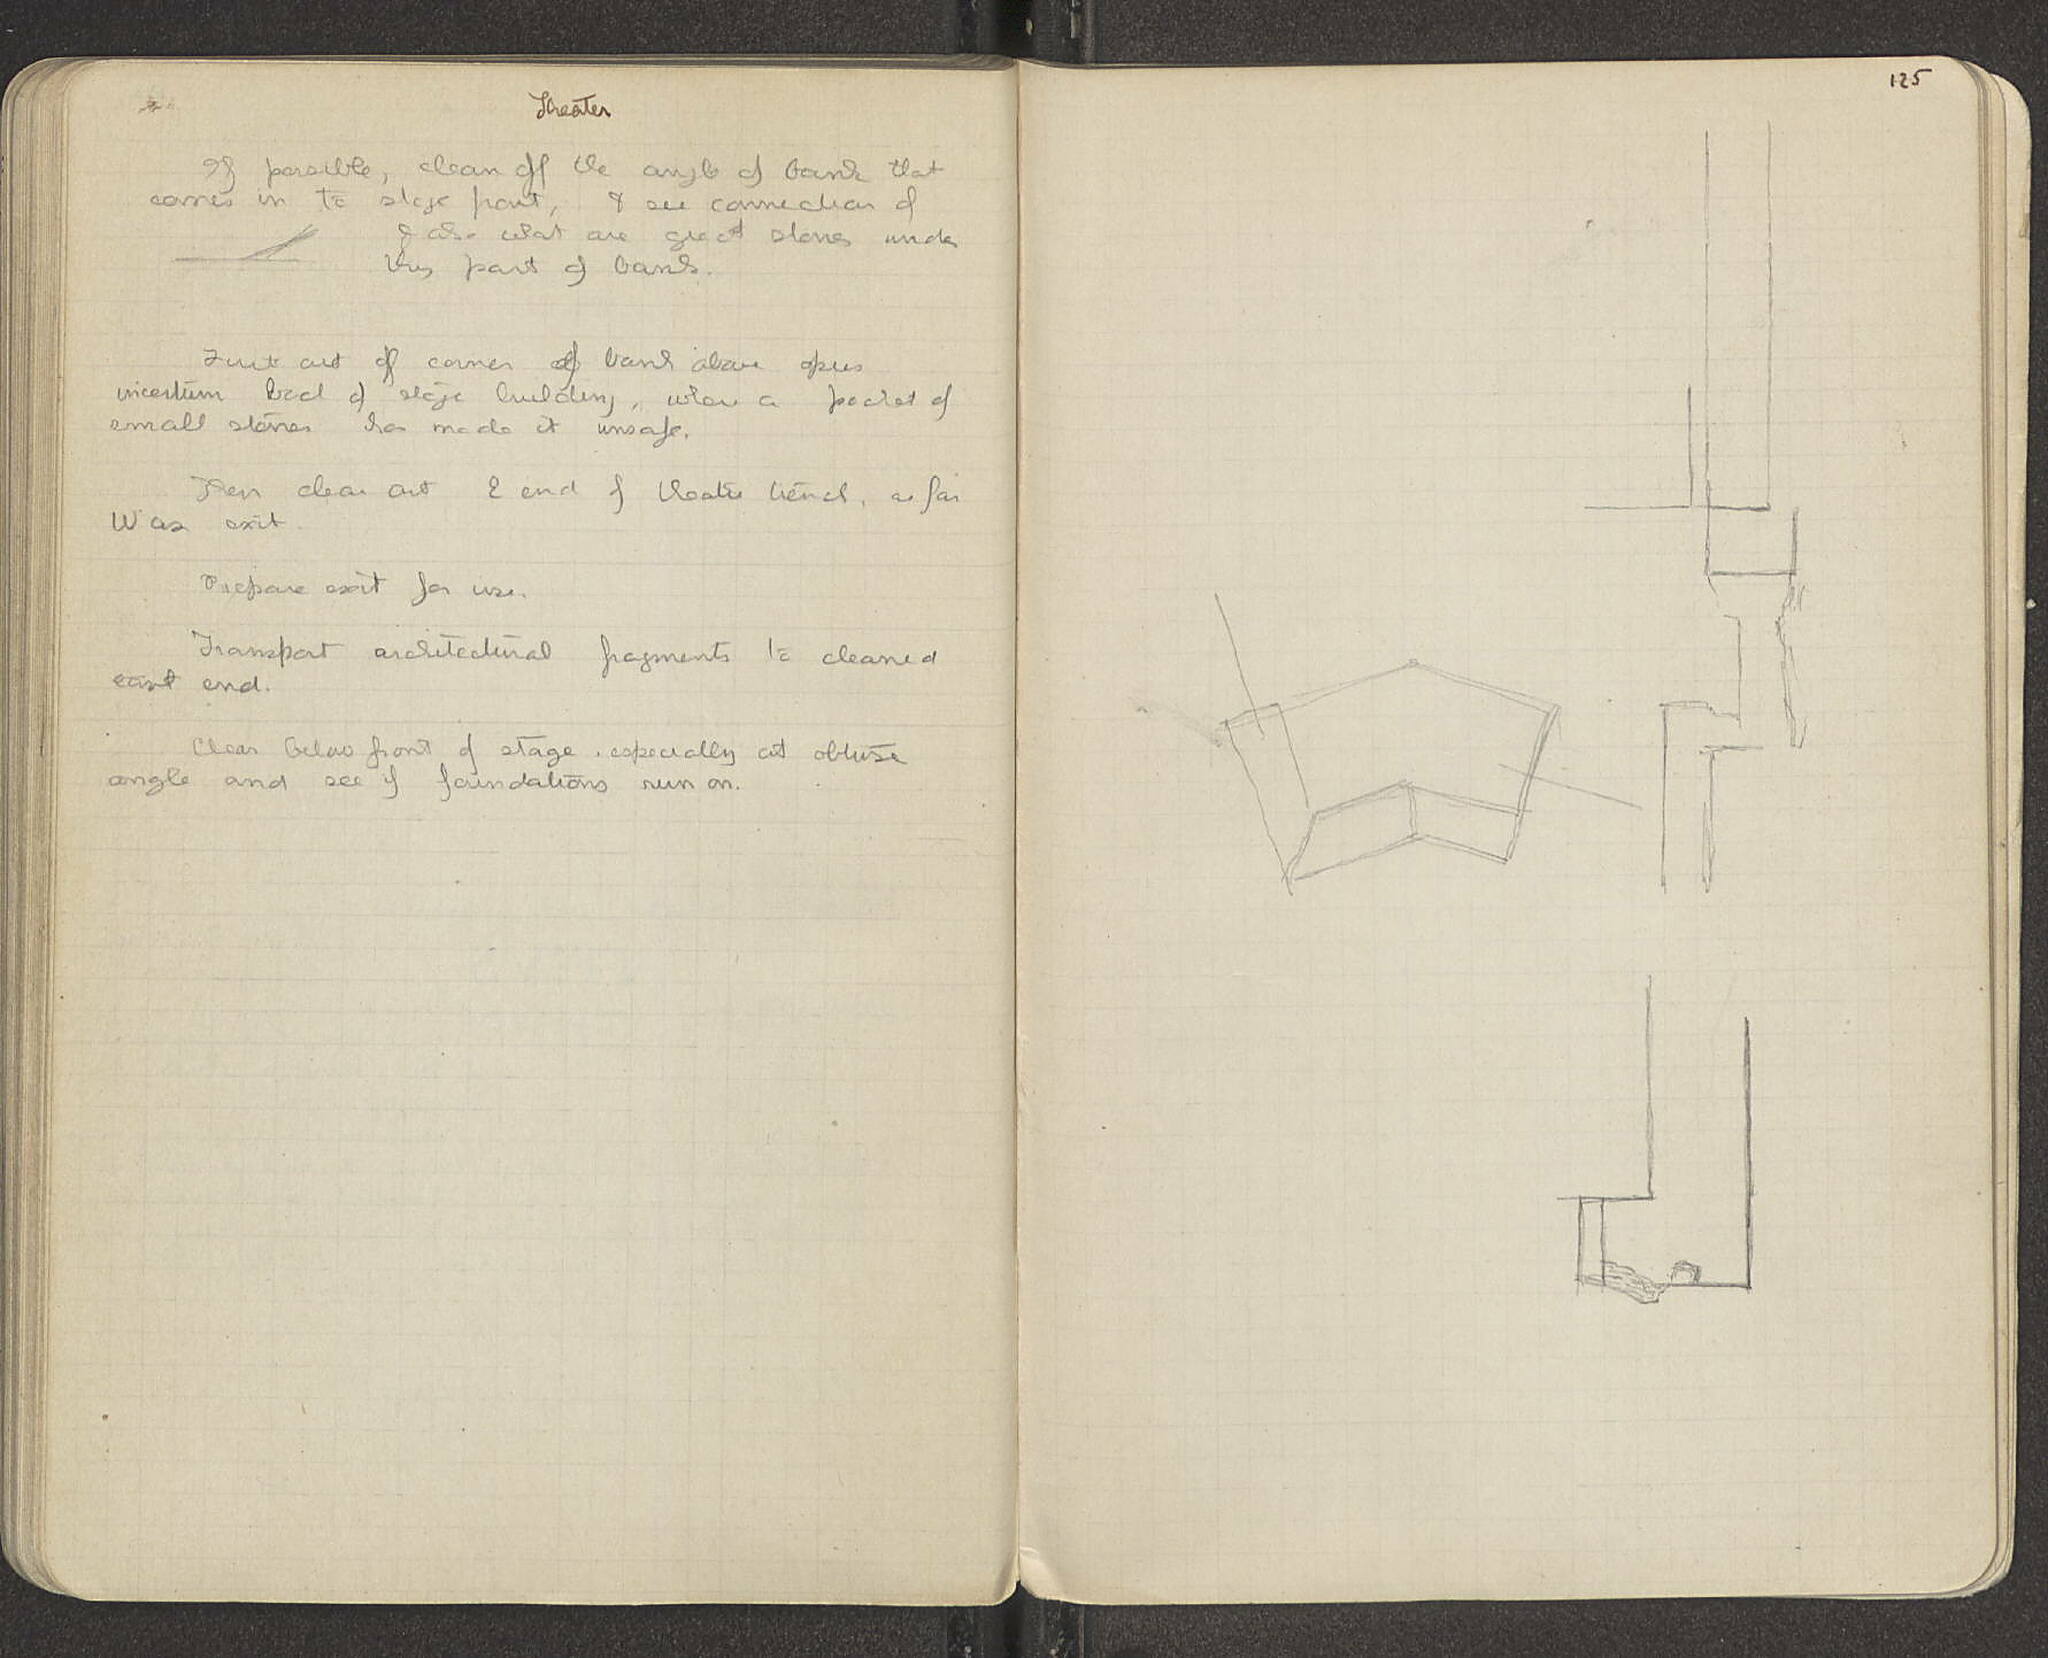 Theater
If possible, clean off the angle of bank that
comes in to stage front, & see connection of
& also what are great stones under
this part of bank.
First cut off corner of bank above opus
incertum wall of stage building, where a pocket of
small stones has made it unsafe.
Then clear out E end of theatre trench, as far
W as exit.
Prepare exit for use.
Transport architectural fragments to cleaned
east end.
Clear below front of stage, especially at obtuse
angle and see if foundations run on.
125